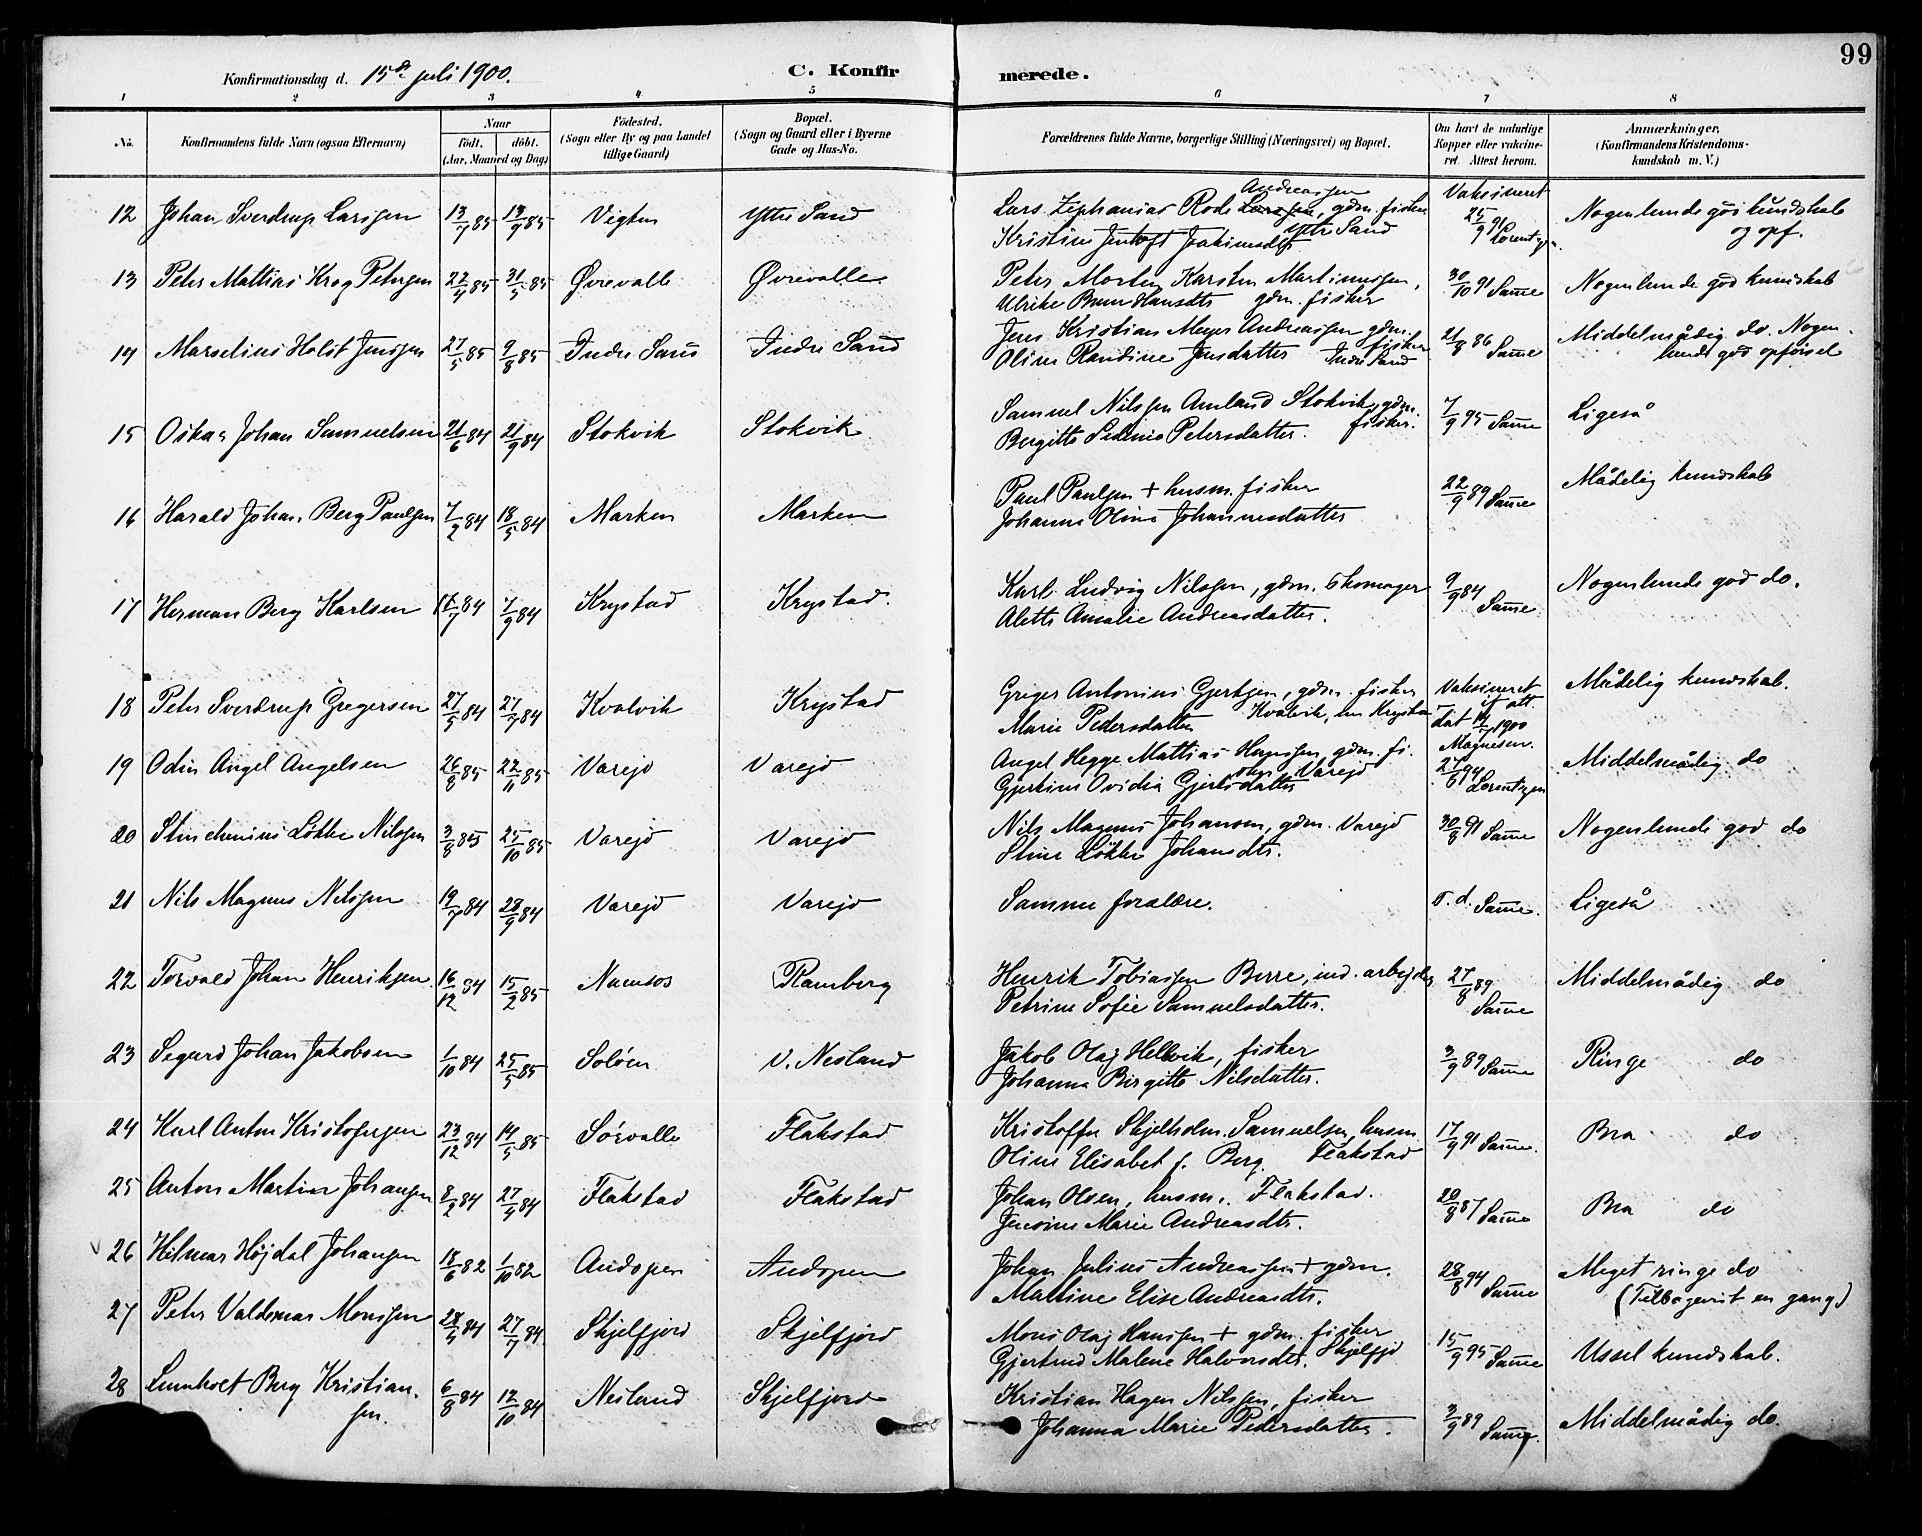 99
Konfirmationsdag d. 15de juli 1900.
C. Konfirmerede.
1 2 3 4 5 6 7 8
No.
Konfirmandens fulde Navn (ogsaa Efternavn)
Naar
födt. döbt.
(Aar, Maaned og Dag)
Födested.
(Sogn eller By og paa Landet
tillige Gaard)
Bopæl.
(Sogn og Gaard eller i Byerne
Gade og Hus-No.
Forældrenes fulde Navne, borgerlige Stilling (Næringsvei) og Bopæl.
Om havt de naturlige
Kopper eller vakcine-
ret. Attest herom.
Anmærkninger.
(Konfirmandens Kristendoms-
kundskab m. V.)
12 Johan Sverdrup Larssen 13/7 85 13/9 85 Vigten Ytre Sand Lars Zephanias Rode Larssen Andreassen, gdm. fisker Vaksineret Nogenlunde god kundskab
Kristine Jentoft Joakimsdtr Ytre Sand 25/9 91 Lorentzen og opf.
13 Peter Mattias Krog Petersen 22/4 85 31/5 85 Øvrevalle Øvrevalle Peter Morten Karsten Martinussen, 30/10 91 Samme Nogenlunde god kundskab
Ulrike Bruun Hansdtr gdm. fisker
14 Marselius Holst Jenssen 27/5 85 9/8 85 Indre Sand Indre Sand Jens Kristian Meyer Andreassen gdm. fisker 21/8 86 Samme Middelmådig do. Nogen-
Oline Randine Jensdatter Indre Sand lunde god opförsel
15 Oskar Johan Samuelsen 21/6 84 21/9 84 Stokvik Stokvik Samuel Nilssen Amland Stokvik, gdm. 7/9 95 Samme Ligeså
Bergitte Petersdatter. fisker.
16 Harald Johan Berg Paulsen 7/2 84 18/5 84 Marken Marken Paul Paulsen + husm. fisker 22/9 89 Samme Mådelig kundskab
Johanna Oline Johannesdatter
17 Herman Berg Karlsen 17/7 84 7/9 84 Krystad Krystad. Karl Ludvig Nilssen, gdm. skomager 9/9 84 Samme. Nogenlunde god do.
Alette Amalie Andreasdatter.
18 Peter Sverdrup Gregersen 27/5 84 27/7 84 Kvalvik Krystad Greger Antonius Gjertsen, gdm. fisker Vaksineret Mådelig kundskab.
Marie Pedersdatter Kvalvik, nu Krystad if. att. dat 14/7 1900 Magnesen.
19 Odin Angel Angelsen 26/8 85 22/11 85 Varejd Varejd Angel Hegge Mattias Hanssen, gdm. fi- 27/6 94 Lorentzen Middelmådig do
Gjertine Ovidia Gjertsdatter sker Varejd
20 Løkke Nilssen 3/8 85 25/10 85 Varejd Varejd Nils Magnus Johansen, gdm. Varejd 30/8 91 Samme Nogenlunde god do
Stine Løkke Johansdtr.
21 Nils Magnus Nilssen 19/7 84 28/9 84 Varejd Varejd Samme forældre. s. d. Samme. Ligeså
22 Torvald Johan Henriksen 16/12 84 15/2 85 Namsos Ramberg Henrik Tobiassen Berre, ind. arbejder 27/8 89 Samme Middelmådig do
Petrine Sofie Samuelsdatter.
23 Segurd Johan Jakobsen 1/10 84 25/5 85 Soløen V. Nesland Jakob Olaj Hellvik, fisker 3/9 89 Samme Ringe do
Johanna Birgitte Nilsdatter.
24 Karl Anton Kristofersen 23/12 84 14/5 85 Sörvalle Flakstad Kristoffer Skjelholm Samuelsen, husm 17/9 91 Samme. Bra do
Oline Elisabet f. Berg. Flakstad
25 Anton Martin Johansen 8/2 84 27/4 84 Flakstad Flakstad Johan Olsen, husm. Flakstad. 20/8 87 Samme Bra do
Jensine Marie Andreasdtr.
26 Hilmar Højdal Johansen 18/6 82 1/10 82 Andopen Andopen Johan Julius Andreassen + gdm. 28/8 94 Samme Meget ringe do
Martine Elise Andreasdtr. (Tilbagevist en gang)
27 Peter Valdemar Monssen 28/5 84 27/7 84 Skjelfjord Skjelfjord Mons Olaj Hanssen + gdm. fisker 15/9 95 Samme Ussel kundskab.
Gjertrud Malene Halvorsdtr. Skjelfjd
28 Lumholt Berg Kristian- 6/8 84 12/10 84 Nesland Skjelfjord Kristian Hagen Nilssen, fisker 3/9 89 Samme. Middelmådig do.
sen. Johanna Marie Pedersdatter.